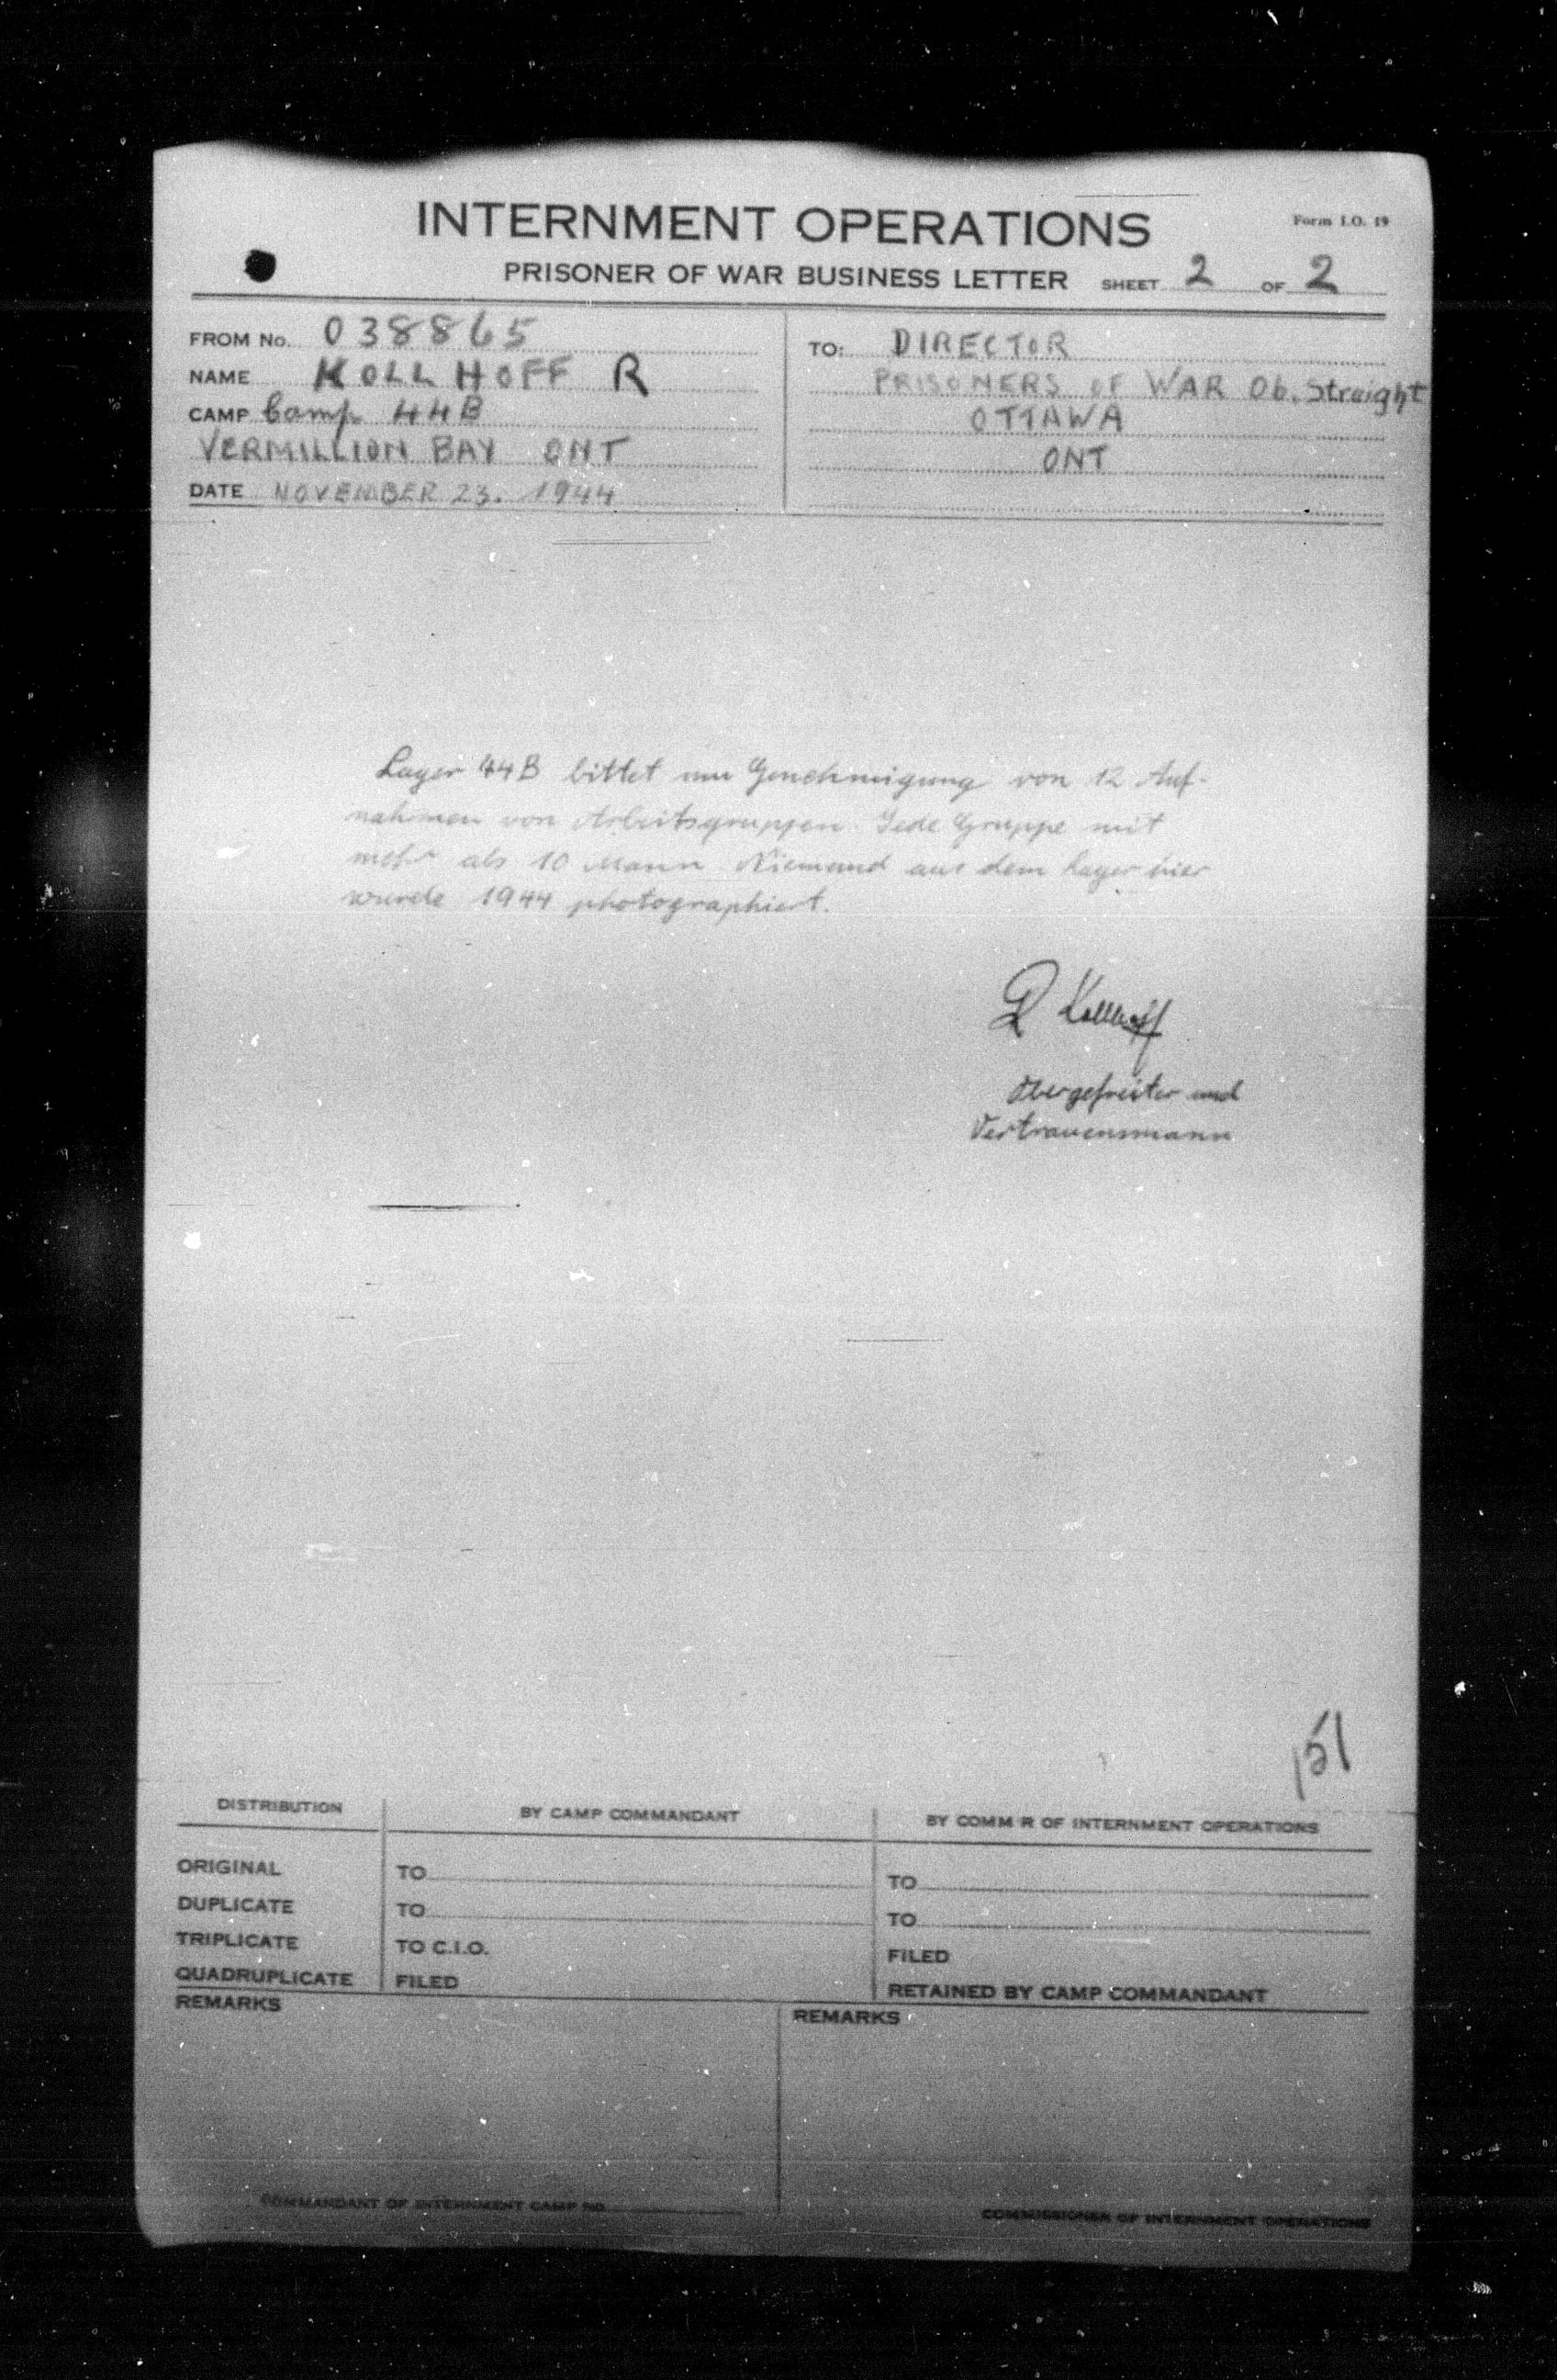 INTERNMENT OPERATIONS
Form I.O. 19
PRISONER OF WAR BUSINESS LETTER SHEET 2 OF 2
FROM No. 038865
NAME KOLLHOFF R
CAMP Camp 44B
VERMILLION BAY ONT
DATE NOVEMBER 23. 1944
TO: DIRECTOR
PRISONERS OF WAR Ob. Streight
OTTAWA
ONT
Lager 44B bittet um Genehmigung von 12 Auf-
nahmen von Arbeitsgruppen. Jede Gruppe mit
mehr als 10 Mann. Niemand aus dem Lager hier
wurde 1944 photographiert.
R Kollhoff
Obergefreiter und
Vertrauensmann
151
DISTRIBUTION BY CAMP COMMANDANT BY COMM'R OF INTERNMENT OPERATIONS
ORIGINAL TO TO
DUPLICATE TO TO
TRIPLICATE TO C.I.O. FILED
QUADRUPLICATE FILED RETAINED BY CAMP COMMANDANT
REMARKS REMARKS
COMMANDANT OF INTERNMENT CAMP NO. COMMISSIONER OF INTERNMENT OPERATIONS